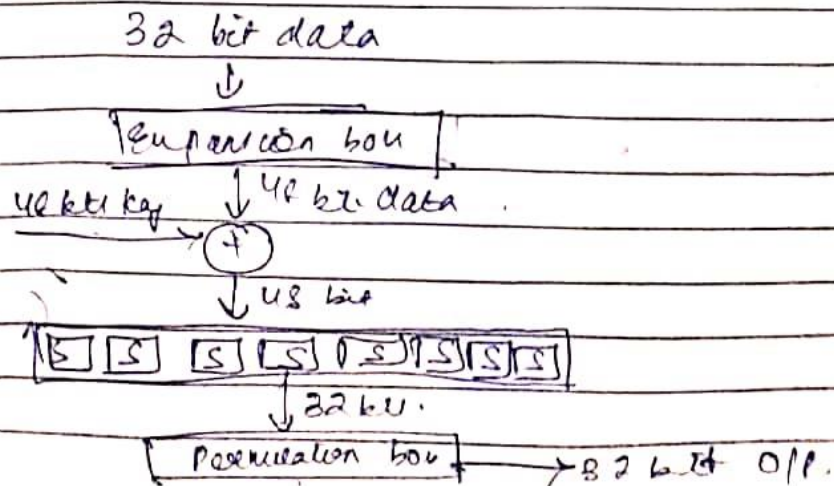 32 bit data
Expansion box
48 bit data
48 bit key
+
48 bit
S S S S S S S S
32 bit.
Permutation box
32 bit O/P.